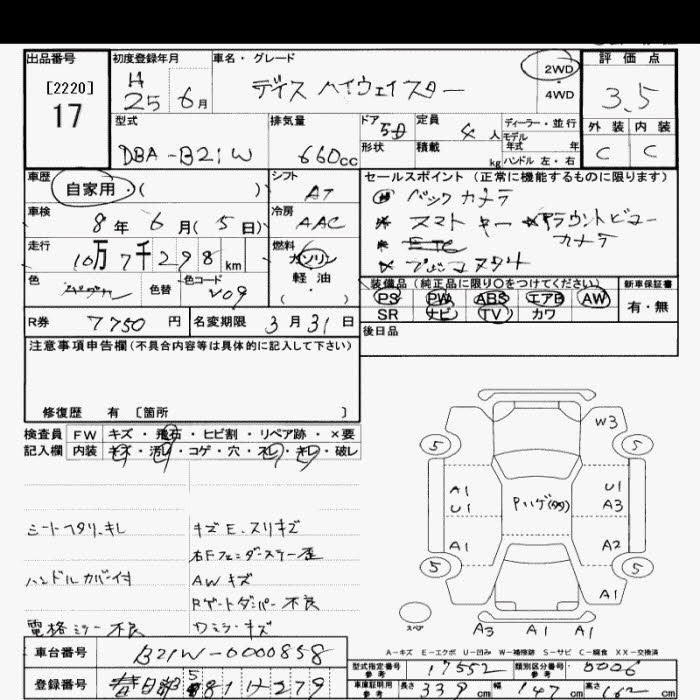 出品番号 初度登録年月 車名・グレード 2WD 評価点
[2220] H デイズ ハイウェイスター 4WD 3.5
17 25 6月
外装 内装
C C
型式 排気量 ドア 定員 ディーラー・並行
DBA-B21W 660cc 5D 4人 モデル年式 年
形状 積載 kg ハンドル 左・右
車歴 シフト セールスポイント (正常に機能するものに限ります)
自家用・( ) AT バックカメラ
車検 冷房 スマートキー アラウンドビュー
8年 6月(5日) AAC カメラ
走行 燃料 ETC
10万7千298km ガソリン プッシュスタート
軽油
( ・ )
色 色替 色コード V09
装備品 (純正品に限り○をつけてください) 新車保証書
PS PW ABS エアB AW 有・無
SR ナビ TV カワ
R券 7750円 名変期限 3月31日 後日品
注意事項申告欄(不具合内容等は具体的に記入して下さい)
修復歴 有 〔箇所 〕
検査員 FW キズ・飛石・ヒビ割・リペア跡・×要
記入欄 内装 キズ・汚レ・コゲ・穴・スレ・キレ・破レ
シートヘタリ、キレ キズE、スリキズ
右Fフェンダーステー歪
ハンドルカバー付 AWキズ
Rゲートダンパー不良
電格ミラー不良 Wミラーキズ
W3
5 5
A1 U1
U1 Pハゲ A3
A1 A2
5 5
A1
スペア A3 A1 A1
A-キズ E-エクボ U-凹み W-補修跡 S-サビ C-腐食 XX-交換済
車台番号 B21W-0000858 型式指定番号参考 17552 類別区分番号参考 0006
登録番号 春日部 581 279 車庫証明用参考 長さ 339cm 幅 147cm 高さ 162cm